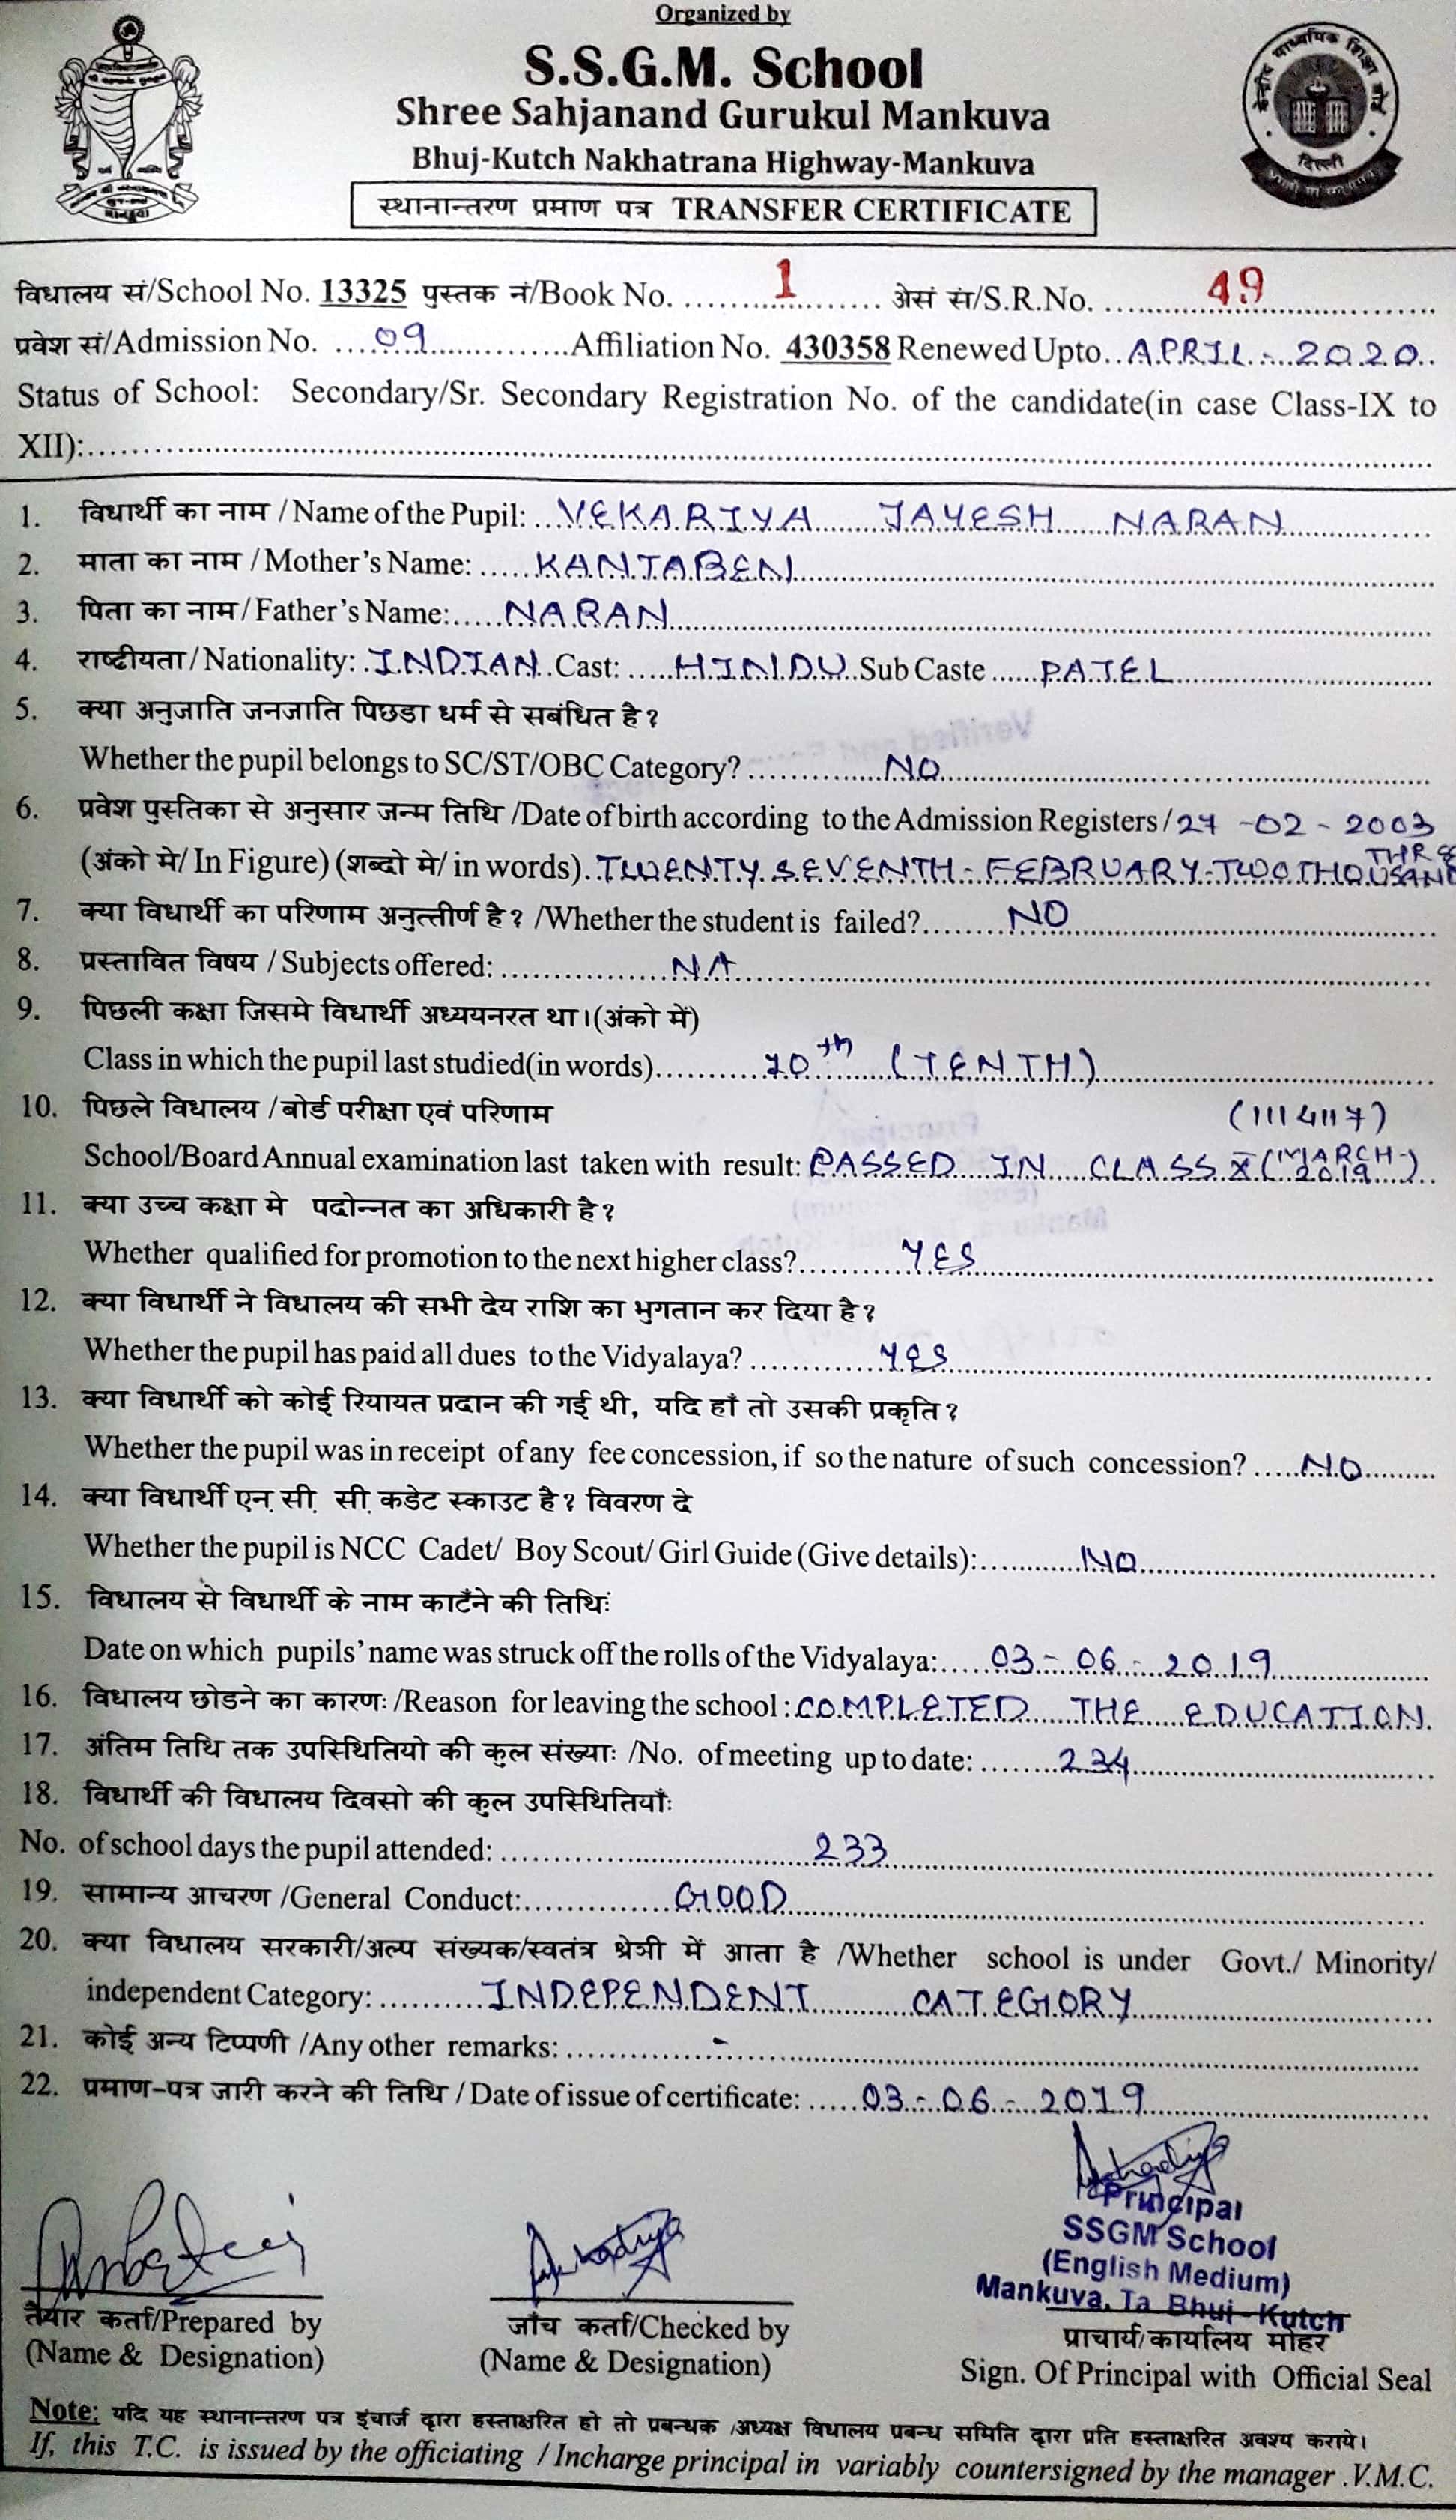 Organized by
S.S.G.M. School
Shree Sahjanand Gurukul Mankuva
Bhuj-Kutch Nakhatrana Highway-Mankuva
स्थानान्तरण प्रमाण पत्र TRANSFER CERTIFICATE
केन्द्रीय माध्यमिक शिक्षा बोर्ड
दिल्ली
विधालय सं/School No. 13325 पुस्तक नं/Book No. ........1........ अेसं सं/S.R.No. ........49........
प्रवेश सं/Admission No. ....09............Affiliation No. 430358 Renewed Upto..APRIL - 2020..
Status of School: Secondary/Sr. Secondary Registration No. of the candidate(in case Class-IX to
XII):........
1. विधार्थी का नाम / Name of the Pupil: ...VEKARIYA JAYESH NARAN........
2. माता का नाम / Mother's Name: ......KANTABEN........
3. पिता का नाम / Father's Name:.....NARAN........
4. राष्टीयता / Nationality: .INDIAN. Cast: .....HINDU..Sub Caste ......PATEL........
5. क्या अनुजाति जनजाति पिछडा धर्म से सबंधित है?
Whether the pupil belongs to SC/ST/OBC Category? ............NO........
6. प्रवेश पुस्तिका से अनुसार जन्म तिथि /Date of birth according to the Admission Registers / 27 -02 - 2003
(अंको मे/ In Figure) (शब्दो मे/ in words)..TWENTY SEVENTH - FEBRUARY-TWO THOUSAND THREE
7. क्या विधार्थी का परिणाम अनुत्तीर्ण है? /Whether the student is failed?........NO........
8. प्रस्तावित विषय / Subjects offered: ............NA........
9. पिछली कक्षा जिसमे विधार्थी अध्ययनरत था।(अंको में)
Class in which the pupil last studied(in words)..........10th (TENTH)........
10. पिछले विधालय / बोर्ड परीक्षा एवं परिणाम (1114117)
School/Board Annual examination last taken with result: PASSED IN CLASS X (MARCH-2019)
11. क्या उच्च कक्षा मे पदोन्नत का अधिकारी है?
Whether qualified for promotion to the next higher class?..........YES........
12. क्या विधार्थी ने विधालय की सभी देय राशि का भुगतान कर दिया है?
Whether the pupil has paid all dues to the Vidyalaya? ............YES........
13. क्या विधार्थी को कोई रियायत प्रदान की गई थी, यदि हाँ तो उसकी प्रकृति?
Whether the pupil was in receipt of any fee concession, if so the nature of such concession? .....NO........
14. क्या विधार्थी एन. सी. सी. कडेट स्काउट है? विवरण दे
Whether the pupil is NCC Cadet/ Boy Scout/ Girl Guide (Give details):..........NO........
15. विधालय से विधार्थी के नाम काटँने की तिथिः
Date on which pupils' name was struck off the rolls of the Vidyalaya:.....03 - 06 - 2019........
16. विधालय छोडने का कारणः /Reason for leaving the school : COMPLETED THE EDUCATION.
17. अंतिम तिथि तक उपस्थितियो की कुल संख्याः /No. of meeting up to date: ........234........
18. विधार्थी की विधालय दिवसो की कुल उपस्थितियाँः
No. of school days the pupil attended: ........233........
19. सामान्य आचरण /General Conduct:..............GOOD........
20. क्या विधालय सरकारी/अल्प संख्यक/स्वतंत्र श्रेत्री में आता है /Whether school is under Govt./ Minority/
independent Category: ..........INDEPENDENT CATEGORY........
21. कोई अन्य टिप्पणी /Any other remarks: ........-........
22. प्रमाण-पत्र जारी करने की तिथि / Date of issue of certificate: .....03 - 06 - 2019........
Principal
SSGM School
(English Medium)
Mankuva, Ta Bhuj - Kutch
तैयार कर्ता/Prepared by
(Name & Designation)
जाँच कर्ता/Checked by
(Name & Designation)
प्राचार्य/कार्यालय मोहर
Sign. Of Principal with Official Seal
Note: यदि यह स्थानान्तरण पत्र इंचार्ज द्वारा हस्ताक्षरित हो तो प्रबन्धक /अध्यक्ष विधालय प्रबन्ध समिति द्वारा प्रति हस्ताक्षरित अवश्य कराये।
If, this T.C. is issued by the officiating / Incharge principal in variably countersigned by the manager .V.M.C.